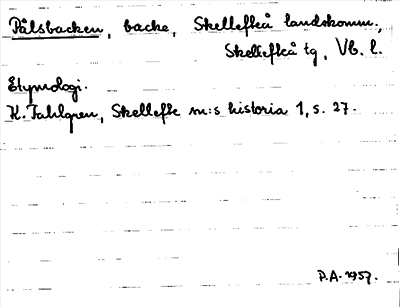 Pålsbacken, backe, Skellefteå landskomm.,
Skellefteå tg, Vb. l.
Etymologi.
K. Fahlgren, Skellefte sn:s historia 1, s. 27.
P.A. 1957.